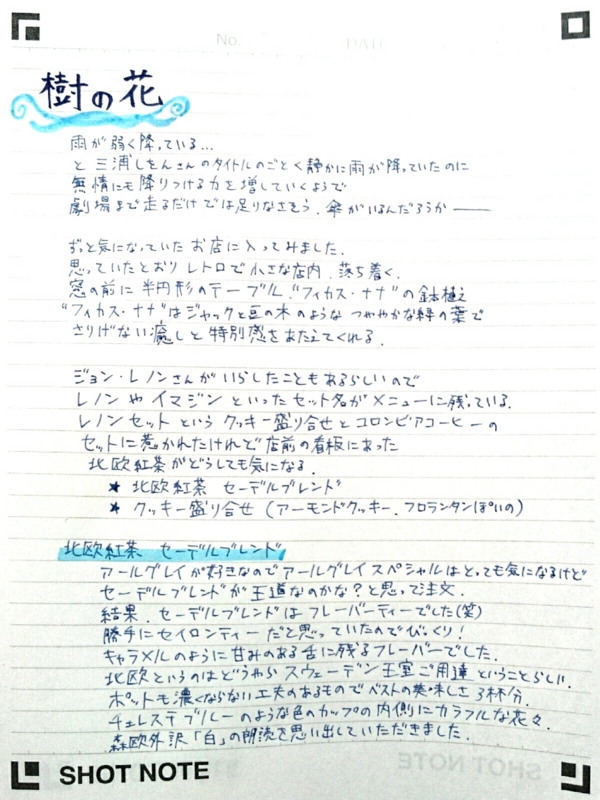 No.
DATE
樹の花
雨が弱く降っている…
と 三浦しをんさんのタイトルのごとく静かに雨が降っていたのに
無情にも降りつける力を増していくようで
劇場まで走るだけでは足りなさそう。傘がいるんだろうか――
ずっと気になっていた お店に入ってみました。
思っていたとおり レトロで小さな店内。落ち着く。
窓の前に 半円形のテーブル。“フィカス・ナナ”の鉢植え
“フィカス・ナナ”はジャックと豆の木のような つややかな緑の葉で
さりげない癒しと特別感をあたえてくれる。
ジョン・レノンさんがいらしたこともあるらしいので
レノン や イマジン といったセット名がメニューに残っている。
レノンセット という クッキー盛り合せとコロンビアコーヒーの
セットに惹かれたけれど 店前の看板にあった
北欧紅茶がどうしても気になる。
★ 北欧紅茶 セーデルブレンド
★ クッキー盛り合せ (アーモンドクッキー、フロランタンぽいの)
北欧紅茶 セーデルブレンド
アールグレイが好きなので アールグレイスペシャルはとっても気になるけど
セーデルブレンドが王道なのかな?と思って注文。
結果、セーデルブレンドは フレーバーティーでした(笑)
勝手にセイロンティーだと思っていたのでびっくり!
キャラメルのように甘みのある舌に残るフレーバーでした。
北欧というのはどうやらスウェーデン王室ご用達ということらしい。
ポットも濃くならない工夫のあるものでベストの美味しさ3杯分。
チェレステブルーのような色のカップの内側にカラフルな花々。
森欧外訳「白」の朗読を思い出していただきました。
SHOT NOTE